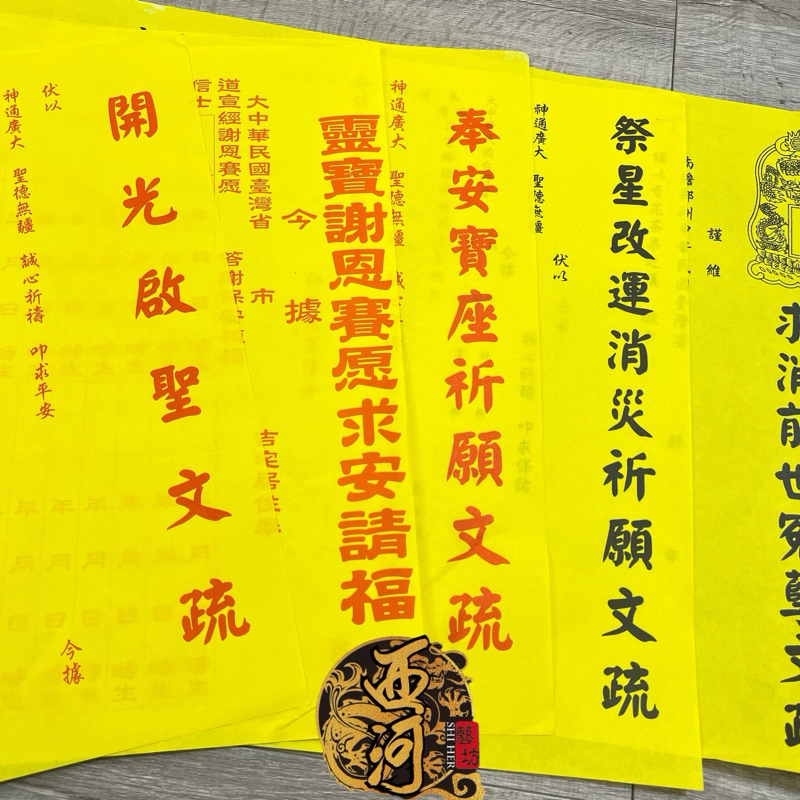 求消前世冤孽文疏
謹維
祭星改運消災祈願文疏
伏以
神通廣大 聖德無疆
奉安寶座祈願文疏
神通廣大 聖德無疆
靈寶謝恩賽愿求安請福
今據
大中華民國臺灣省 市
道宣經謝恩賽愿
信士
開光啟聖文疏
今據
伏以
神通廣大 聖德無疆 誠心祈禱 叩求平安
西河
藝坊
SHI HER